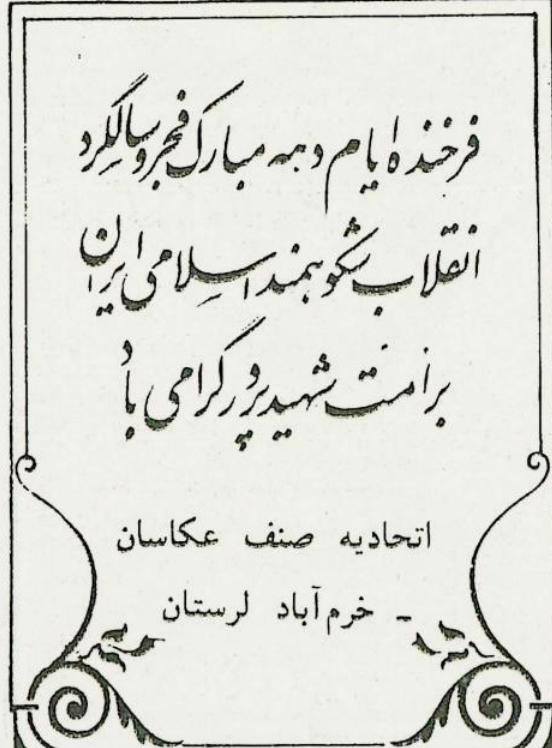 فرخنده ایام دهه مبارک فجر و سالگرد
انقلاب شکوهمند اسلامی ایران
بر امت شهیدپرور گرامی باد
اتحادیه صنف عکاسان
ـ خرم‌آباد لرستان